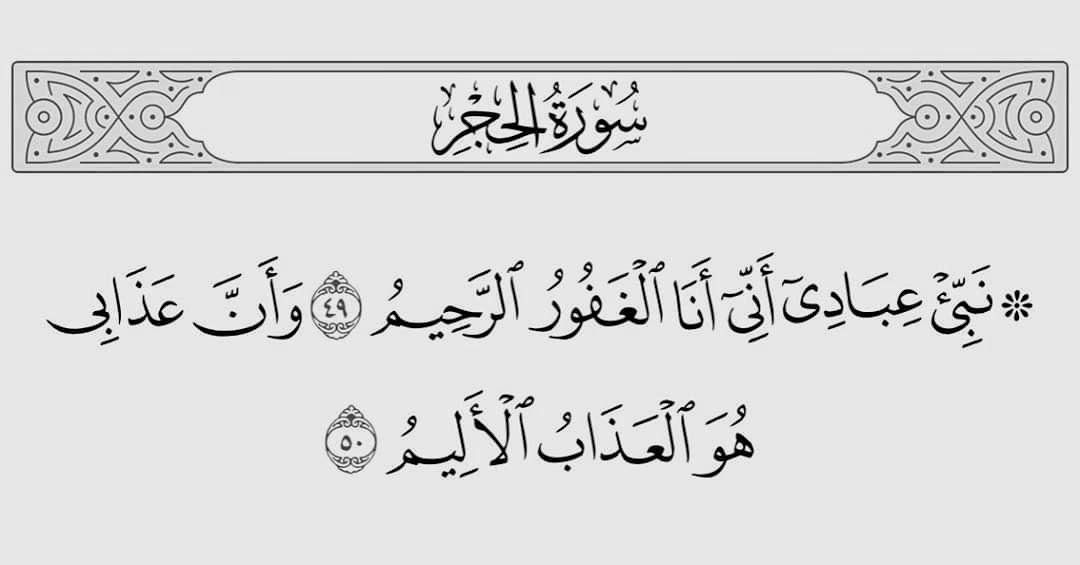 سُورَةُ الحِجْرِ
۞ نَبِّئْ عِبَادِىٓ أَنِّىٓ أَنَا ٱلْغَفُورُ ٱلرَّحِيمُ ٤٩ وَأَنَّ عَذَابِى
هُوَ ٱلْعَذَابُ ٱلْأَلِيمُ ٥٠